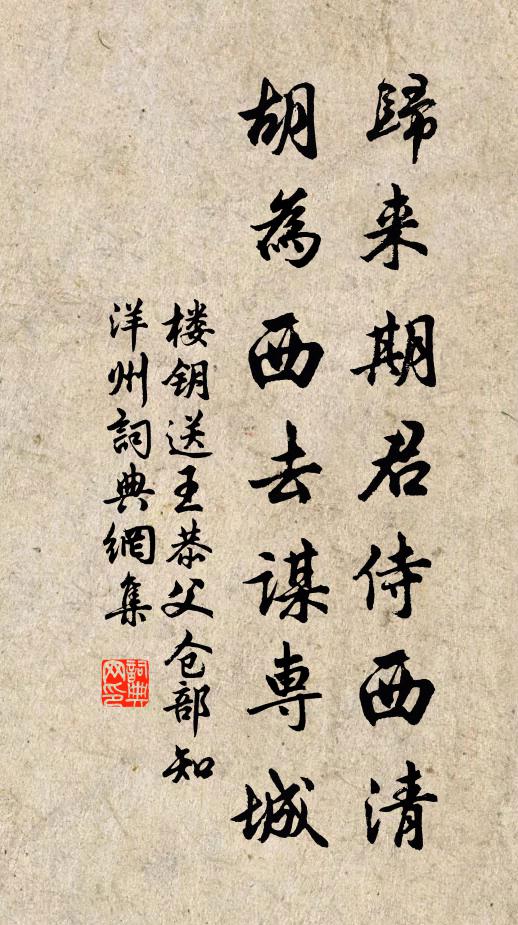 歸来期君侍西清
胡為西去謀専城
楼钥送王恭父仓部知
洋州詞典網集
詞典网印